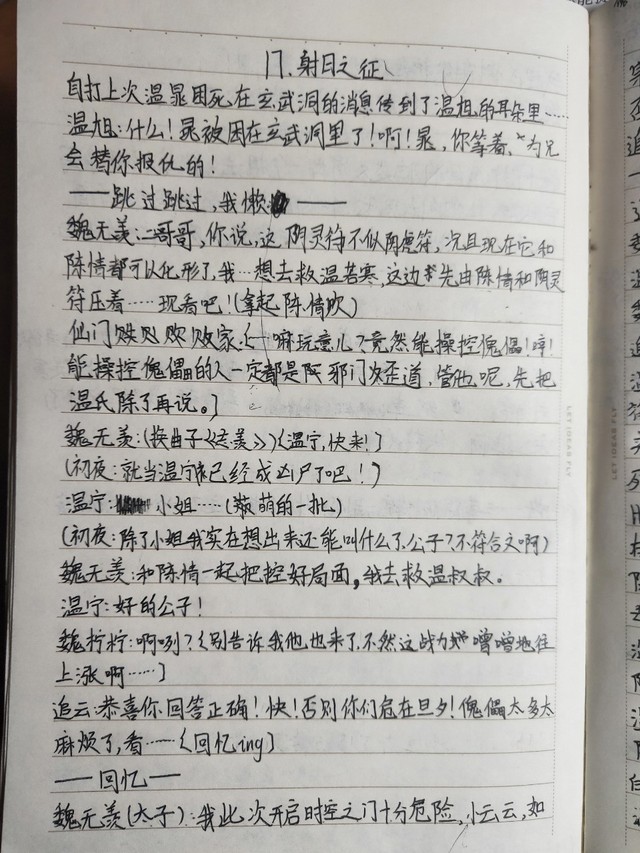 17.射日之征
自打上次温晁困死在玄武洞的消息传到了温旭的耳朵里……
温旭:什么!晁被困在玄武洞里了!啊!晁,你等着,为兄
会替你报仇的!
——跳过跳过,我懒——
魏无羡:二哥哥,你说,这阴灵符不似阴虎符,况且现在它和
陈情都可以化形了,我…想去救温若寒,这边先由陈情和阴灵
符压着……现看吧!(拿起陈情吹)
仙门败家:{嘛玩意儿?竟然能操控傀儡!啐!
能操控傀儡的人一定都是邪门歪道,管他呢,先把
温氏除了再说。}
魏无羡:(换曲子《羡》){温宁,快来!}
(初夜:就当温宁已经成凶尸了吧!)
温宁:小姐……(蠢萌的一批)
(初夜:除了小姐我实在想出来还能叫什么了.公子?不符合文啊)
魏无羡:和陈情一起把控好局面,我去救温叔叔。
温宁:好的公子!
魏柠柠:啊咧?{别告诉我他也来了.不然这战力噌噌地往
上涨啊……}
追云:恭喜你回答正确!快!否则你们危在旦夕!傀儡太多太
麻烦了,看……{回忆ing}
——回忆——
魏无羡(太子):我此次开启时空之门十分危险,小云云,如
LET IDEAS FLY